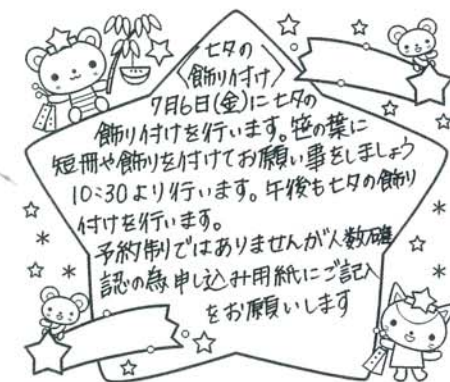 七夕の
〈飾り付け〉
7月6日(金)に七夕の
飾り付けを行います。笹の葉に
短冊や飾りを付けてお願い事をしましょう
10:30より行います。午後も七夕の飾り
付けを行います。
予約制ではありませんが人数確
認の為申し込み用紙にご記入
をお願いします